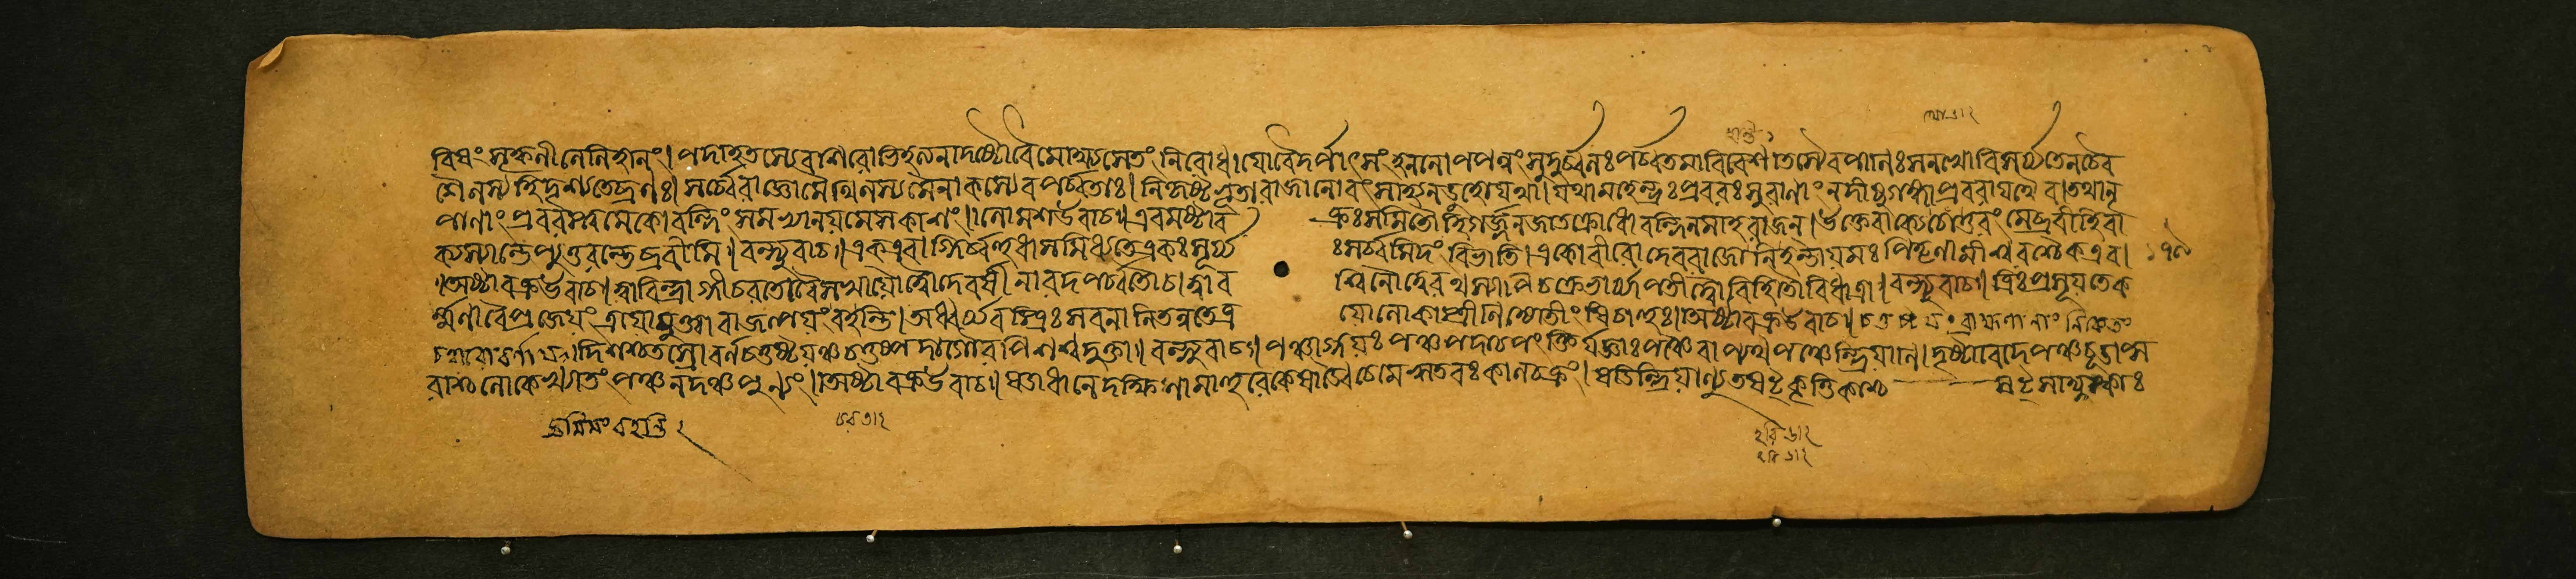 বিষং সৃক্কণীলেলিহানং। পদাহতস্যেব শিরোভিহত্য নাদষ্টো বৈ মোক্ষ্যসে তং নিবোধ। যো বৈ দর্পাৎ সংহননোপপন্নং সুদুর্ব্বলঃ পর্ব্বতমাবিবেশ। তস্যৈব পাণিঃ সনখো বিসর্য্যতে ন চৈব
শৈলস্য হি দৃশ্যতে ব্রণঃ। সর্ব্বে রাজ্ঞো মৈথিলস্য মৈনাকস্যেব পর্ব্বতাঃ। নিকৃষ্টভূতা রাজানো বৎসা হ্যনডুহো যথা। যথা মহেন্দ্রঃ প্রবরঃ সুরাণাং নদীষু গঙ্গা প্রবরা যথৈব। তথা নৃ
পাণাং প্রবরস্ত্বমেকো বন্দিং সমভ্যানয় মে সকাশং॥ লোমশ উবাচ॥ এবমষ্টাব ক্রঃ সমিতৌ হি গর্জ্জন্ জাতক্রোধো বন্দিনমাহ রাজন্। উক্তে বাক্যে চোত্তরং মে ব্রবীহি বা
ক্যস্য চান্তেপ্যুত্তরন্তে ব্রবীমি। বন্দ্যুবাচ॥ এক এবাগ্নির্ব্বহুধা সমিধ্যতে একঃ সূর্য্য ঃ সর্ব্বমিদং বিভাতি। একো বীরো দেবরাজো নিহন্তা যমঃ পিতৄণামীশ্বরশ্চৈক এব।
।অষ্টাবক্র উবাচ। দ্বাবিন্দ্রাগ্নী চরতো বৈ সখায়ৌ দ্বৌ দেবর্ষী নারদপর্ব্বতৌ চ। দ্বাব শ্বিনৌ দ্বে রথস্যাপি চক্রে ভার্য্যাপতী দ্বৌ বিহিতৌ বিধাত্রা। বন্দ্যুবাচ। ত্রিঃ প্রসূয়তে ক
র্ম্মণা বৈ প্রজেয়ং ত্রয়ো যুক্তা বাজপেয়ং বহন্তি। অধ্বর্য্যবস্ত্রিঃ সবনানি তন্বতে ত্র য়ো লোকাস্ত্রীণি জ্যোতীংষি চাহুঃ। অষ্টাবক্র উবাচ। চতুষ্টয়ং ব্রাহ্মণানাং নিকেতং
দিশশ্চতস্রো বর্ণচতুষ্টয়ঞ্চ চতুষ্পদা গৌরপি শশ্বদুক্তা। বন্দ্যুবাচ। পঞ্চাগ্নয়ঃ পঞ্চপদা চ পংক্তির্যজ্ঞাঃ পঞ্চৈবাপ্যথ পঞ্চেন্দ্রিয়াণি। দৃষ্টা বেদে পঞ্চচূড়াপ্স
রাশ্চ লোকে খ্যাতং পঞ্চনদঞ্চ পুণ্যং। অষ্টাবক্র উবাচ। ষড়াধানে দক্ষিণামাহুরেকে ষট্ চৈবেমে ঋতবঃ কালচক্রং। ষডিন্দ্রিয়াণ্যুত ষট্ কৃত্তিকাশ্চ ষট্ সাদ্যস্কাঃ